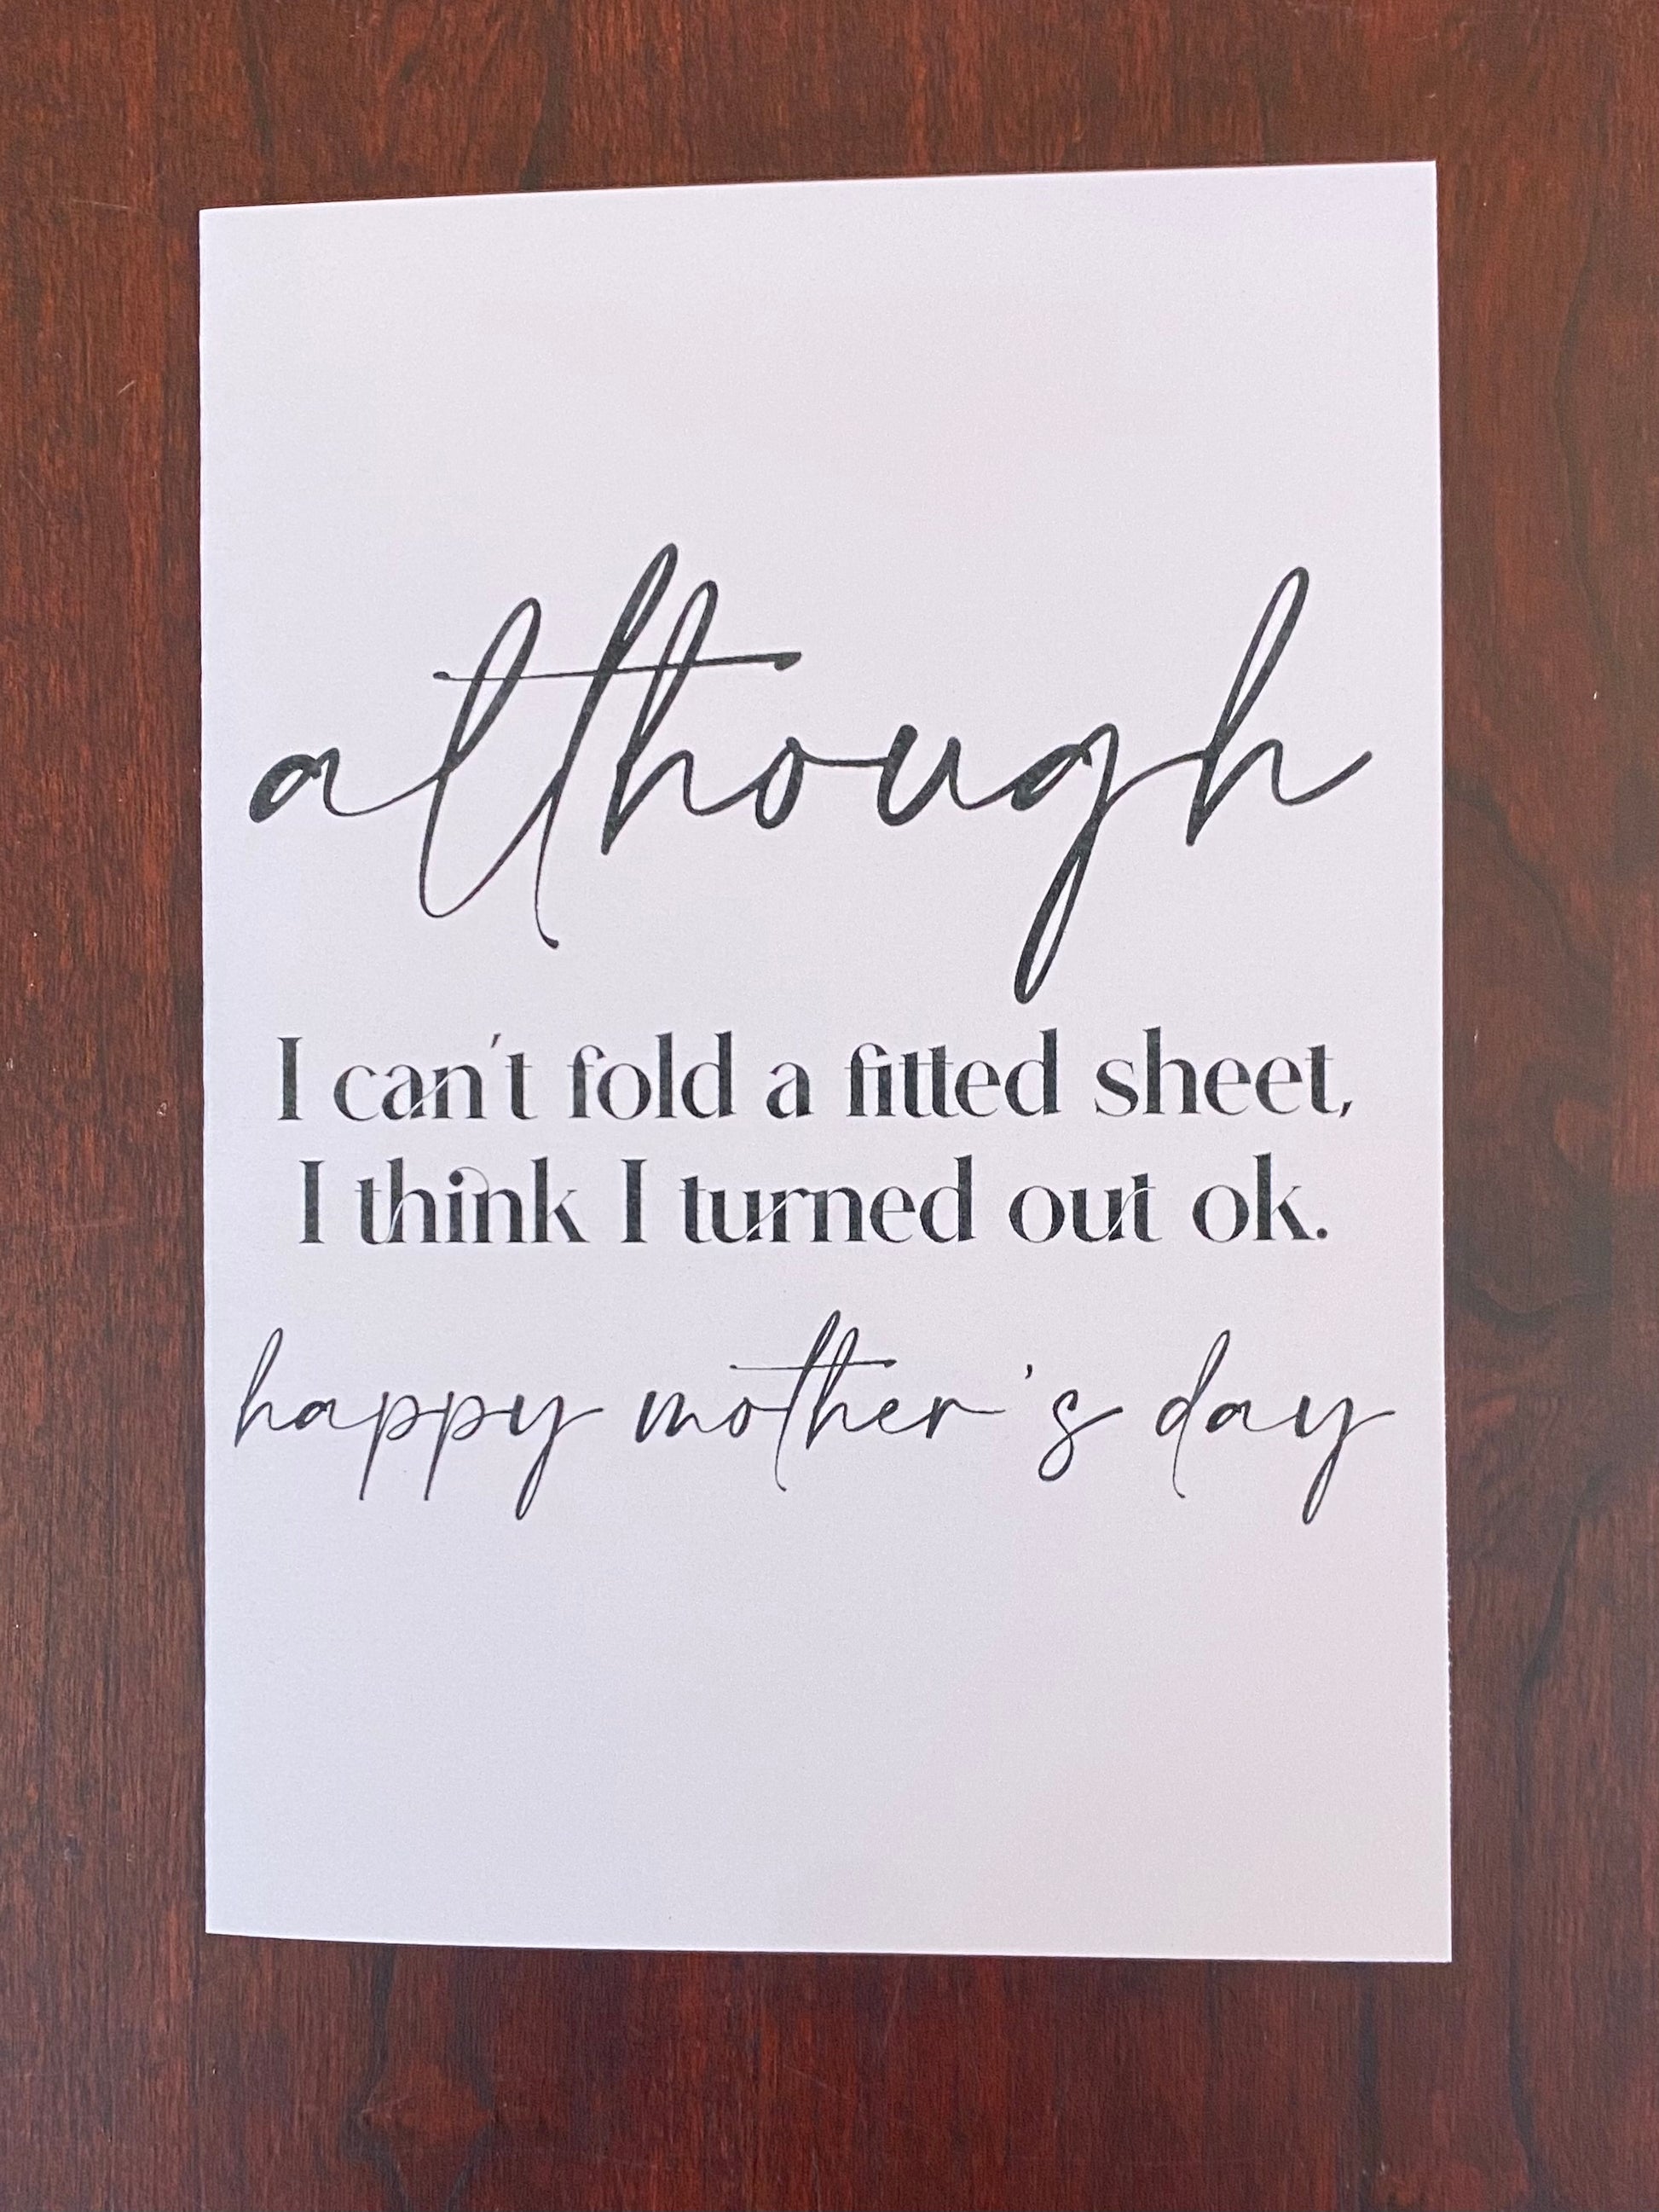 although
I can't fold a fitted sheet,
I think I turned out ok.
happy mother's day